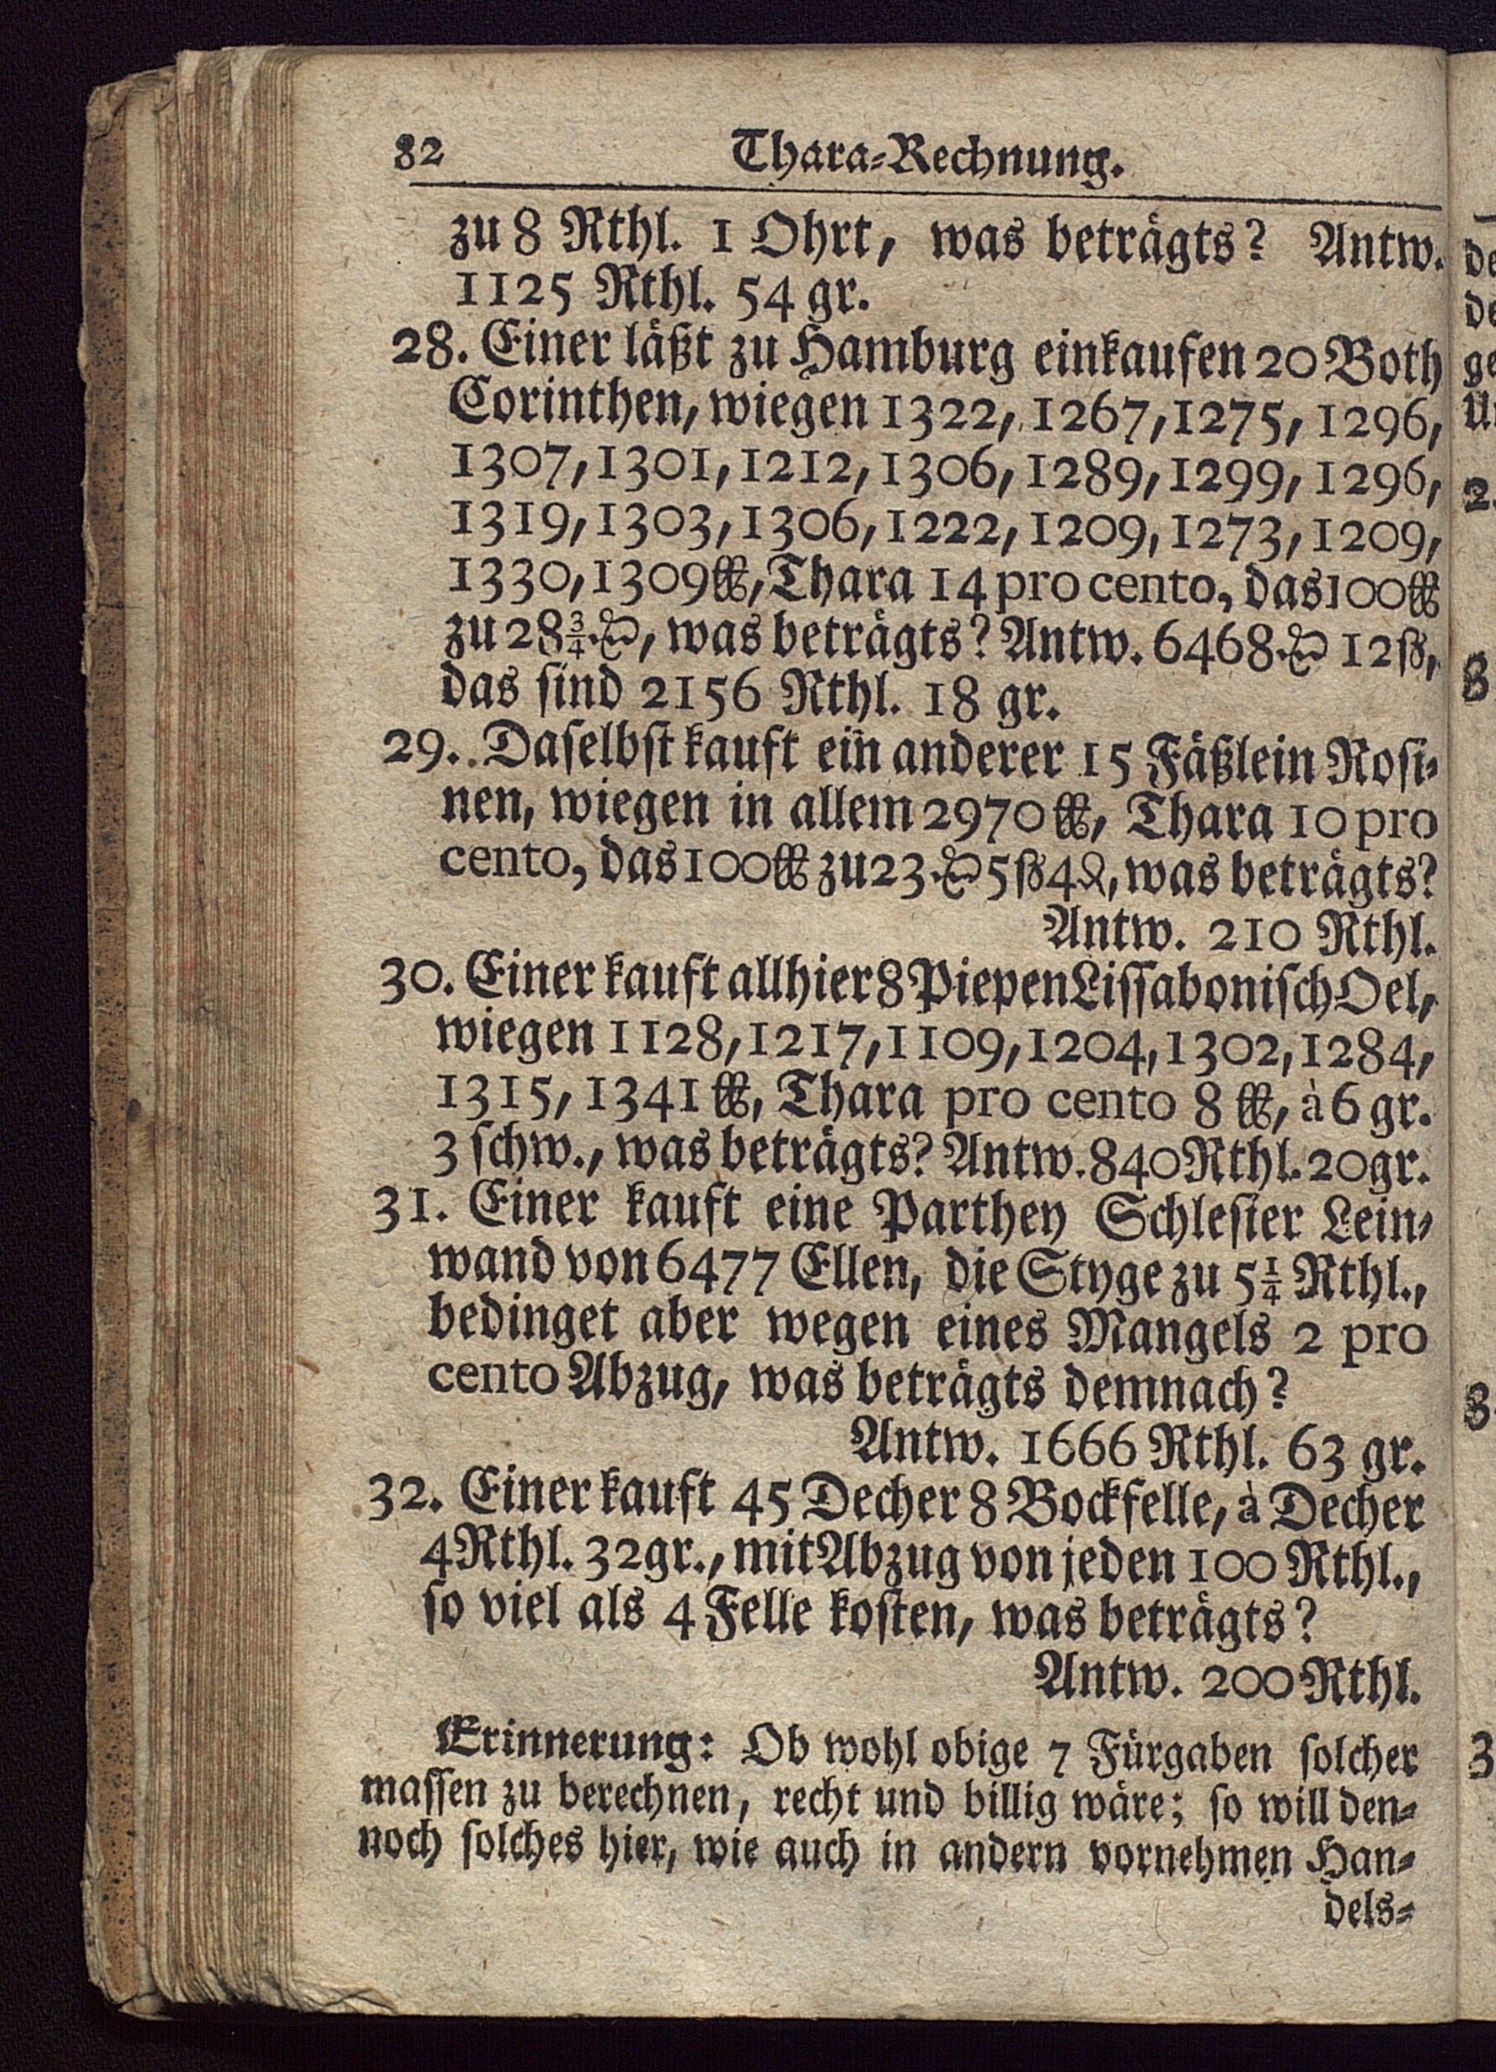 82 Thara-Rechnung.
zu 8 Rthl. 1 Ohrt, was beträgts? Antw.
1125 Rthl. 54 gr.
28. Einer läßt zu Hamburg einkaufen 20 Both
Corinthen, wiegen 1322, 1267, 1275, 1296,
1307, 1301, 1212, 1306, 1289, 1299, 1296,
1319, 1303, 1306, 1222, 1209, 1273, 1209,
1330, 1309 ℔, Thara 14 pro cento, das 100 ℔
zu 28 3/4 ₻, was beträgts? Antw. 6468 ₻ 12 ß,
das sind 2156 Rthl. 18 gr.
29. Daselbst kauft ein anderer 15 Fäßlein Rosi-
nen, wiegen in allem 2970 ℔, Thara 10 pro
cento, das 100 ℔ zu 23 ₻ 5 ß 4 ₰, was beträgts?
Antw. 210 Rthl.
30. Einer kauft allhier 8 Piepen Lissabonisch Oel,
wiegen 1128, 1217, 1109, 1204, 1302, 1284,
1315, 1341 ℔, Thara pro cento 8 ℔, à 6 gr.
3 schw., was beträgts? Antw. 840 Rthl. 20 gr.
31. Einer kauft eine Parthey Schlesier Lein-
wand von 6477 Ellen, die Styge zu 5 1/4 Rthl.,
bedinget aber wegen eines Mangels 2 pro
cento Abzug, was beträgts demnach?
Antw. 1666 Rthl. 63 gr.
32. Einer kauft 45 Decher 8 Bockfelle, à Decher
4 Rthl. 32 gr., mit Abzug von jeden 100 Rthl.,
so viel als 4 Felle kosten, was beträgts?
Antw. 200 Rthl.
Erinnerung: Ob wohl obige 7 Fürgaben solcher
massen zu berechnen, recht und billig wäre; so will den-
noch solches hier, wie auch in andern vornehmen Han-
dels-